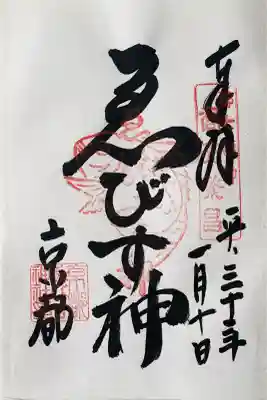 奉拝
平、三十年
一月十日
ゑびす神
京都